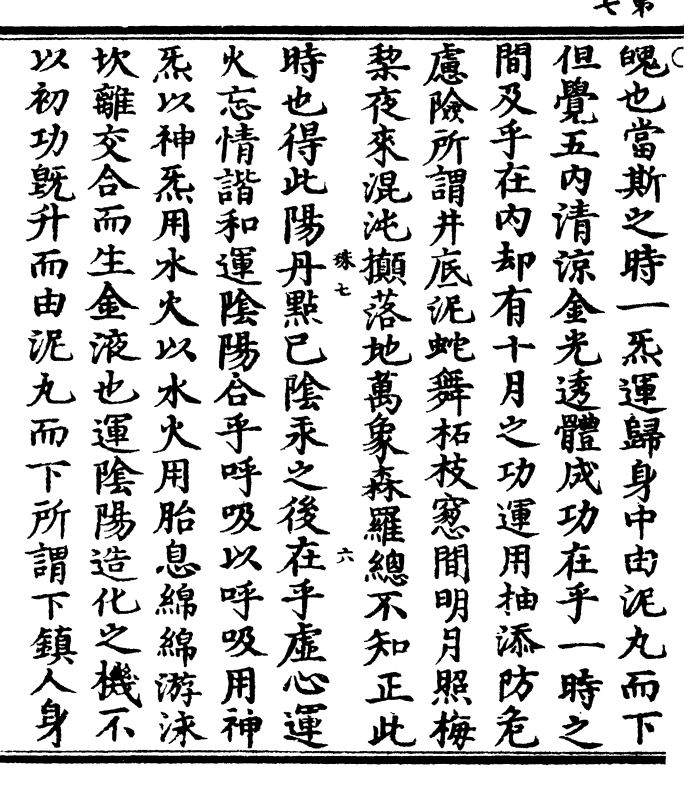 魄也當斯之時一炁運歸身中由泥丸而下
但覺五內清涼金光透體成功在乎一時之
間及乎在內却有十月之功運用抽添防危
慮險所謂井底泥蛇舞柘枝窻間明月照梅
黎夜來混沌攧落地萬象森羅總不知正此
珠七 六
時也得此陽丹點己陰汞之後在乎虛心運
火忘情諧和運陰陽合乎呼吸以呼吸用神
炁以神炁用水火以水火用胎息綿綿游泳
坎離交合而生金液也運陰陽造化之機不
以初功旣升而由泥丸而下所謂下鎮人身